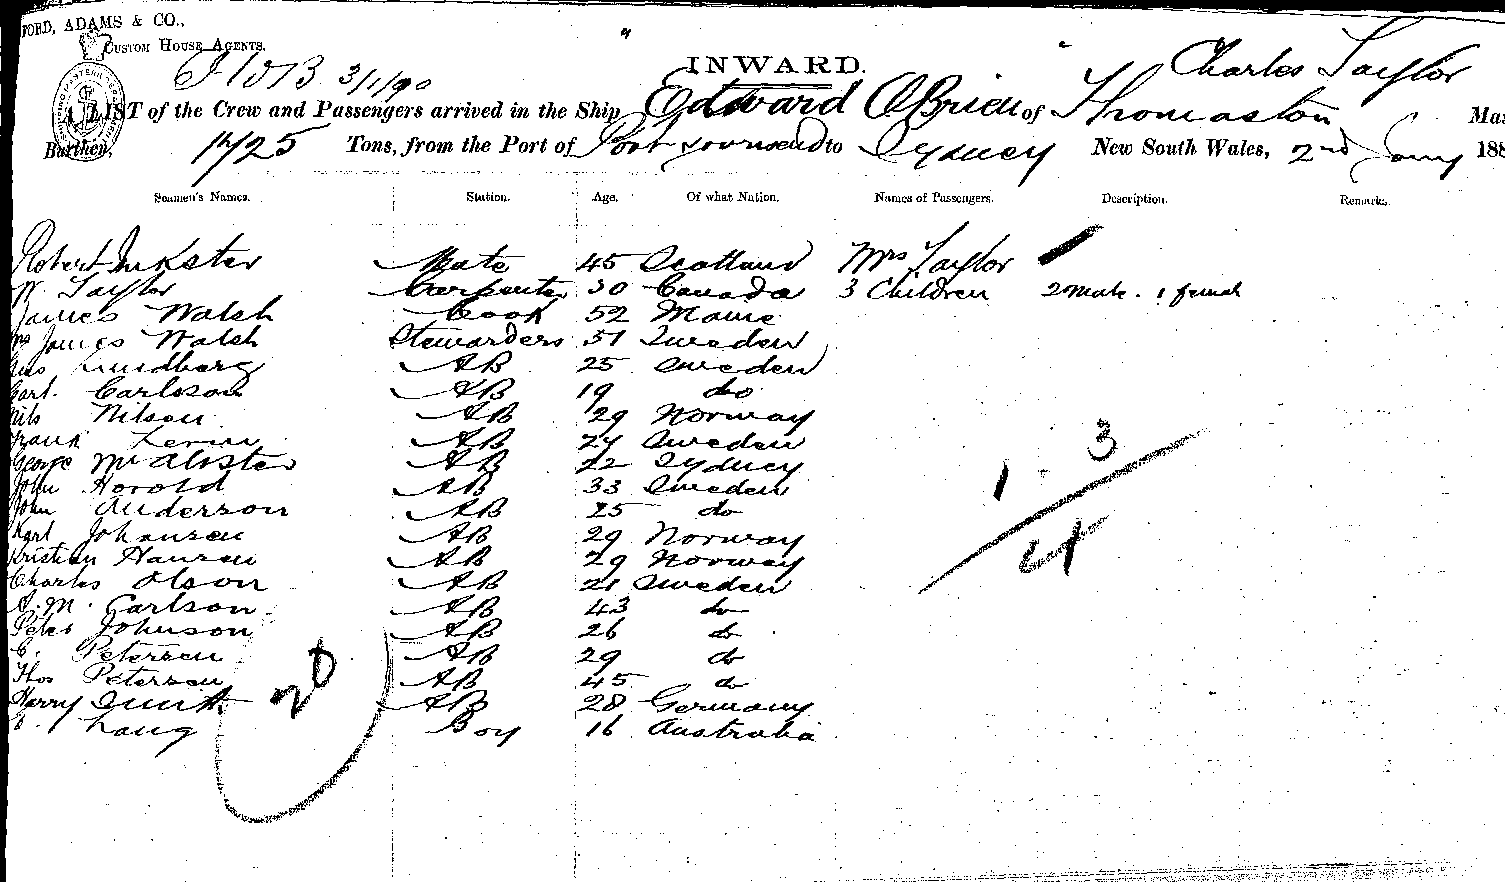 FORD, ADAMS & CO.,
CUSTOM HOUSE AGENTS.
3/1/90
INWARD.
Charles Taylor
A LIST of the Crew and Passengers arrived in the Ship Edward O'Brien of Thomaston Mas
Burthen, 1725 Tons, from the Port of Port Townsend to Sydney New South Wales, 2nd Jany 188
Seamen's Names. Station. Age. Of what Nation. Names of Passengers. Description. Remarks.
Robert Inkster Mate 45 Scotland Mrs Taylor
W. Taylor Carpenter 30 Canada 3 Children 2 Male. 1 female
James Walsh Cook 52 Maine
Mrs James Walsh Stewardess 51 Sweden
Gus Lundberg AB 25 Sweden
Carl. Carlsson AB 19 do
Nils Nilsen AB 29 Norway
Frank AB 27 Sweden
George McAlister AB 22 Sydney
John Horold AB 33 Sweden
John Anderson AB 25 do
Karl Johansen AB 29 Norway
Kristian Hansen AB 29 Norway
Charles Olson AB 21 Sweden
A. M. Carlson AB 43 do
Peter Johnson AB 26 do
C. Petersen AB 29 do
Thos Petersen AB 45 do
Harry Smith AB 28 Germany
Lang Boy 16 Australia
20
1 . 3
4